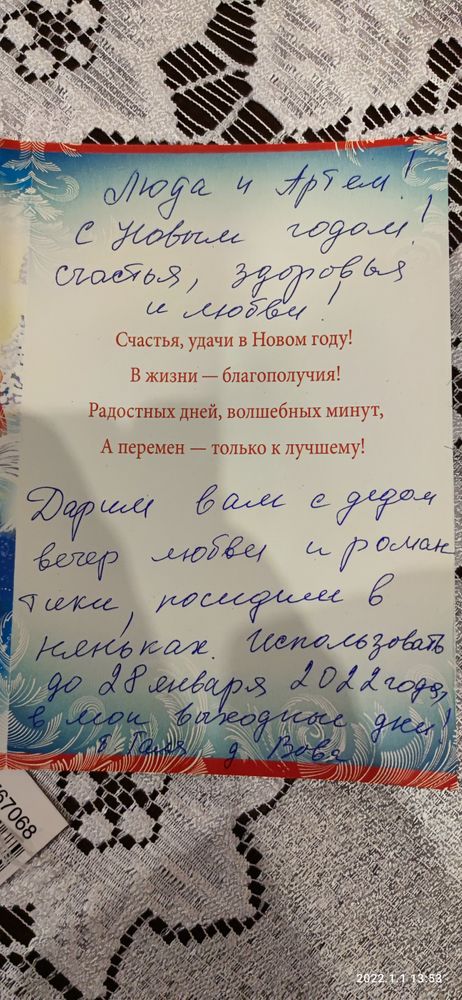 Люда и Артем!
С Новым годом!
Счастья, здоровья
и любви!
Счастья, удачи в Новом году!
В жизни — благополучия!
Радостных дней, волшебных минут,
А перемен — только к лучшему!
Дарим вам с дедом
вечер любви и роман
тики, посидим в
няньках. Использовать
до 28 января 2022 года,
в мои выходные дни!
б Галя д Вова
67068
2022.1.1 13:53